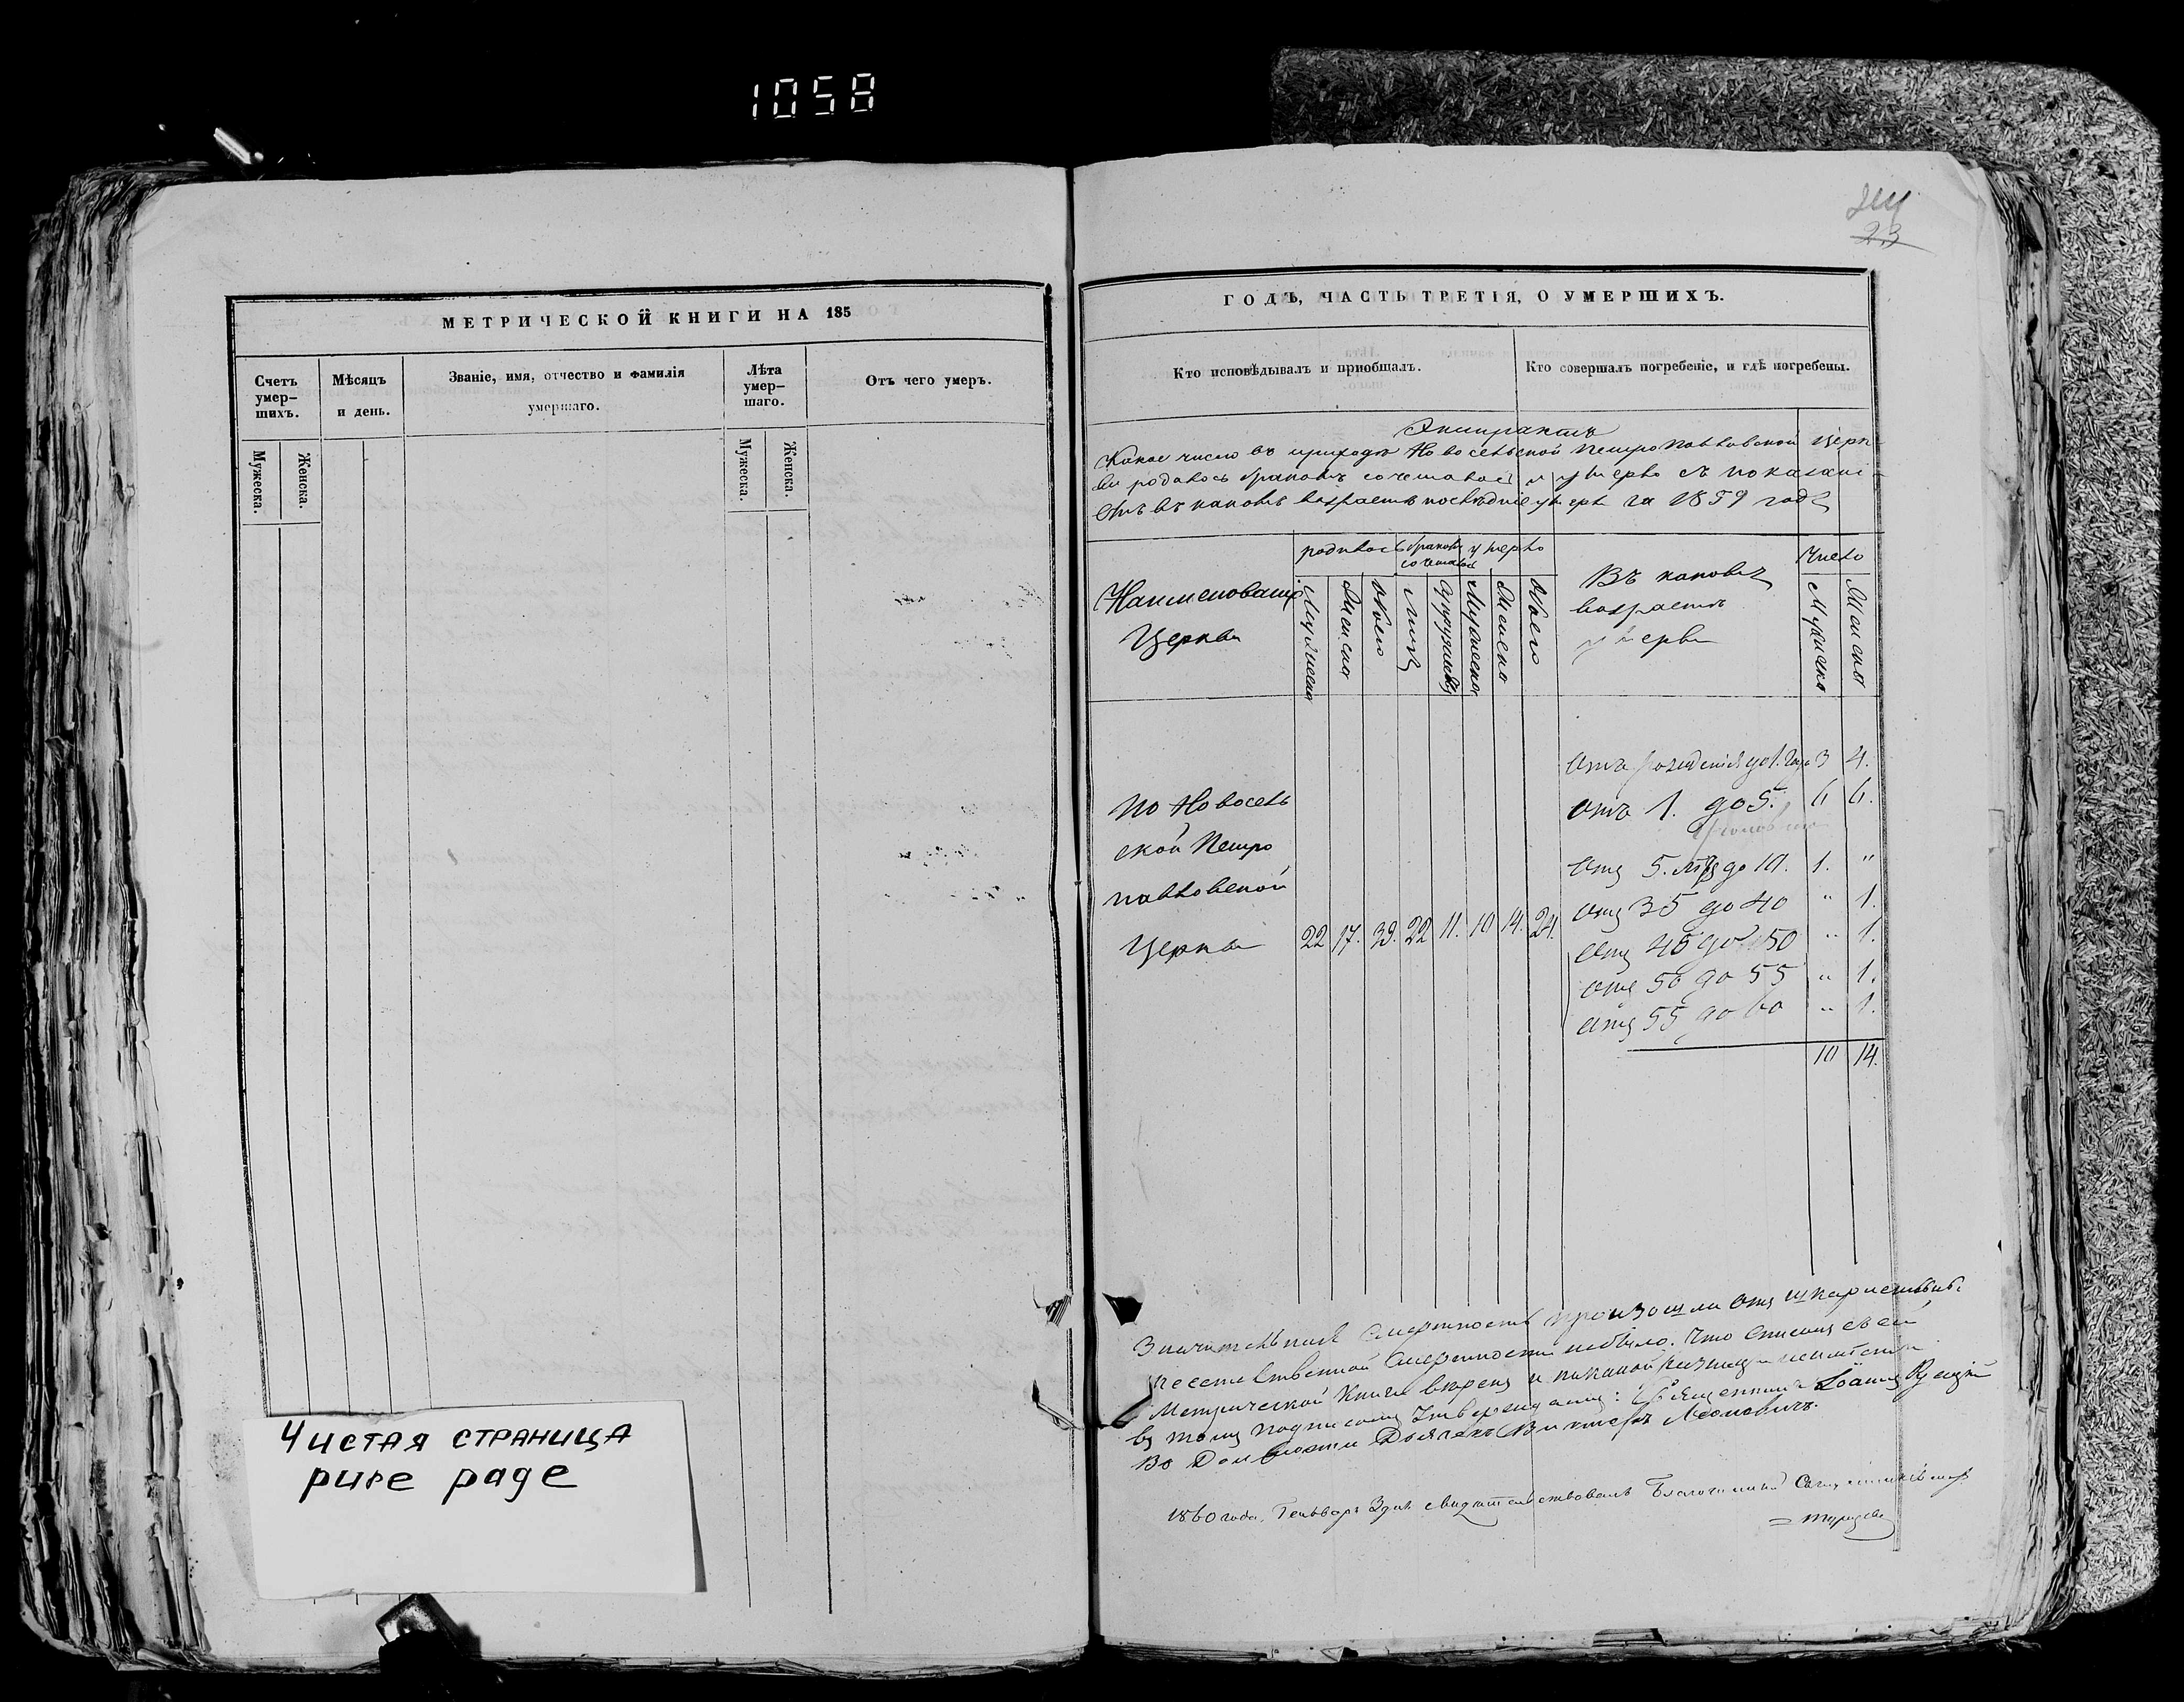 1058
МЕТРИЧЕСКОЙ КНИГИ НА 185
Счетъ умер-
шихъ.
Мѣсяцъ
и день.
Званіе, имя, отчество и фамилія
умершаго.
Лѣта
умер-
шаго.
Отъ чего умеръ.
Мужеска.
Женска.
Мужеска.
Женска.
Чистая страница
pure page
23
ГОДЪ, ЧАСТЬ ТРЕТІЯ, О УМЕРШИХЪ.
Кто исповѣдывалъ и приобщалъ.
Кто совершалъ погребеніе, и гдѣ погребены.
Экстрактъ
Какое число въ приходѣ Новосельской Петропавловской Церк
ви родилось браковъ сочеталось и умерло съ показані
емъ въ какомъ возрастѣ последніе умерли за 1859 годъ
Наименованіе
Церкви
родилось
браковъ
сочеталось
умерло
Въ какомъ
возрастѣ
умерли
Число
Мужеска
Женска
Обоего
Лицъ
Супружествъ
Мужеска
Женска
Обоего
Мужеска
Женска
По Новосель
ской Петро
павловской
Церкви
22 17. 39. 22 11. 10 14. 24.
Отъ рожденія до 1. года 3 4.
отъ 1. до 5. 6 6.
Отъ 5. лѣтъ до 10. 1. "
Отъ 35 до 40 " 1.
Отъ 45 до 50 " 1.
Отъ 50 до 55 " 1.
Отъ 55 до 60 " 1.
10 14.
Значительная смертность произошла отъ
смертности небыло. Что списокъ сей
Метрической Книги вѣренъ и никакой разницы
въ томъ подписомъ утверждаемъ: Священникъ Іоаннъ
Дьячекъ Викторъ
1860 года, Генваря 3 дня свидѣтельствовалъ Благочинный